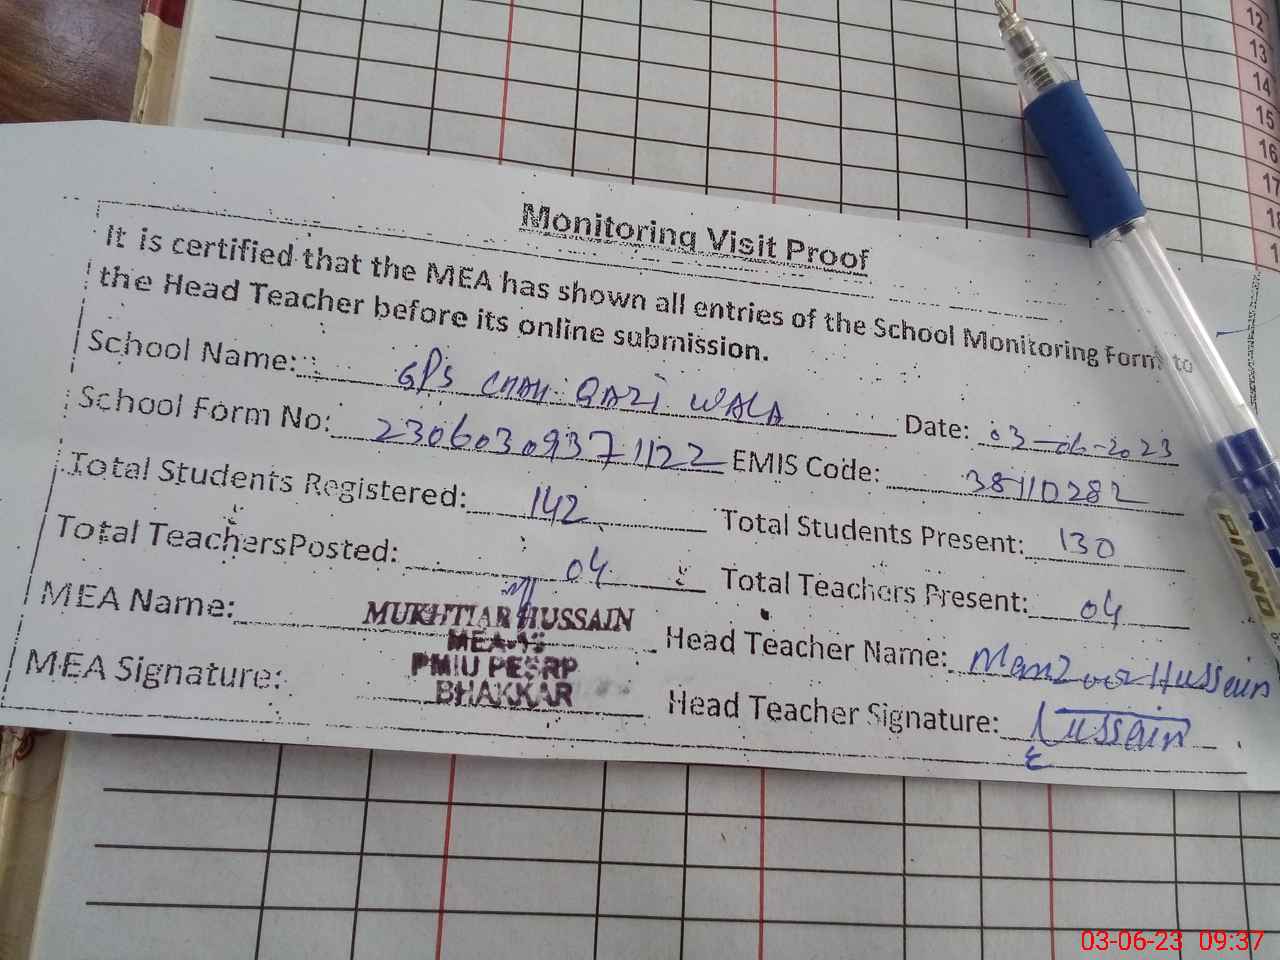 12
13
14
15
16
17
Monitoring Visit Proof
It is certified that the MEA has shown all entries of the School Monitoring Form to
the Head Teacher before its online submission.
School Name: GPS CHAH QAZI WALA Date: 03-06-2023
School Form No: 23060309371122 EMIS Code: 38110282
Total Students Registered: 142 Total Students Present: 130
Total TeachersPosted: 04 Total Teachers Present: 04
MEA Name: MUKHTIAR HUSSAIN Head Teacher Name: Manzoor Hussain
PMIU PESRP
MEA Signature: BHAKKAR Head Teacher Signature: Hussain
PIANO
03-06-23 09:37